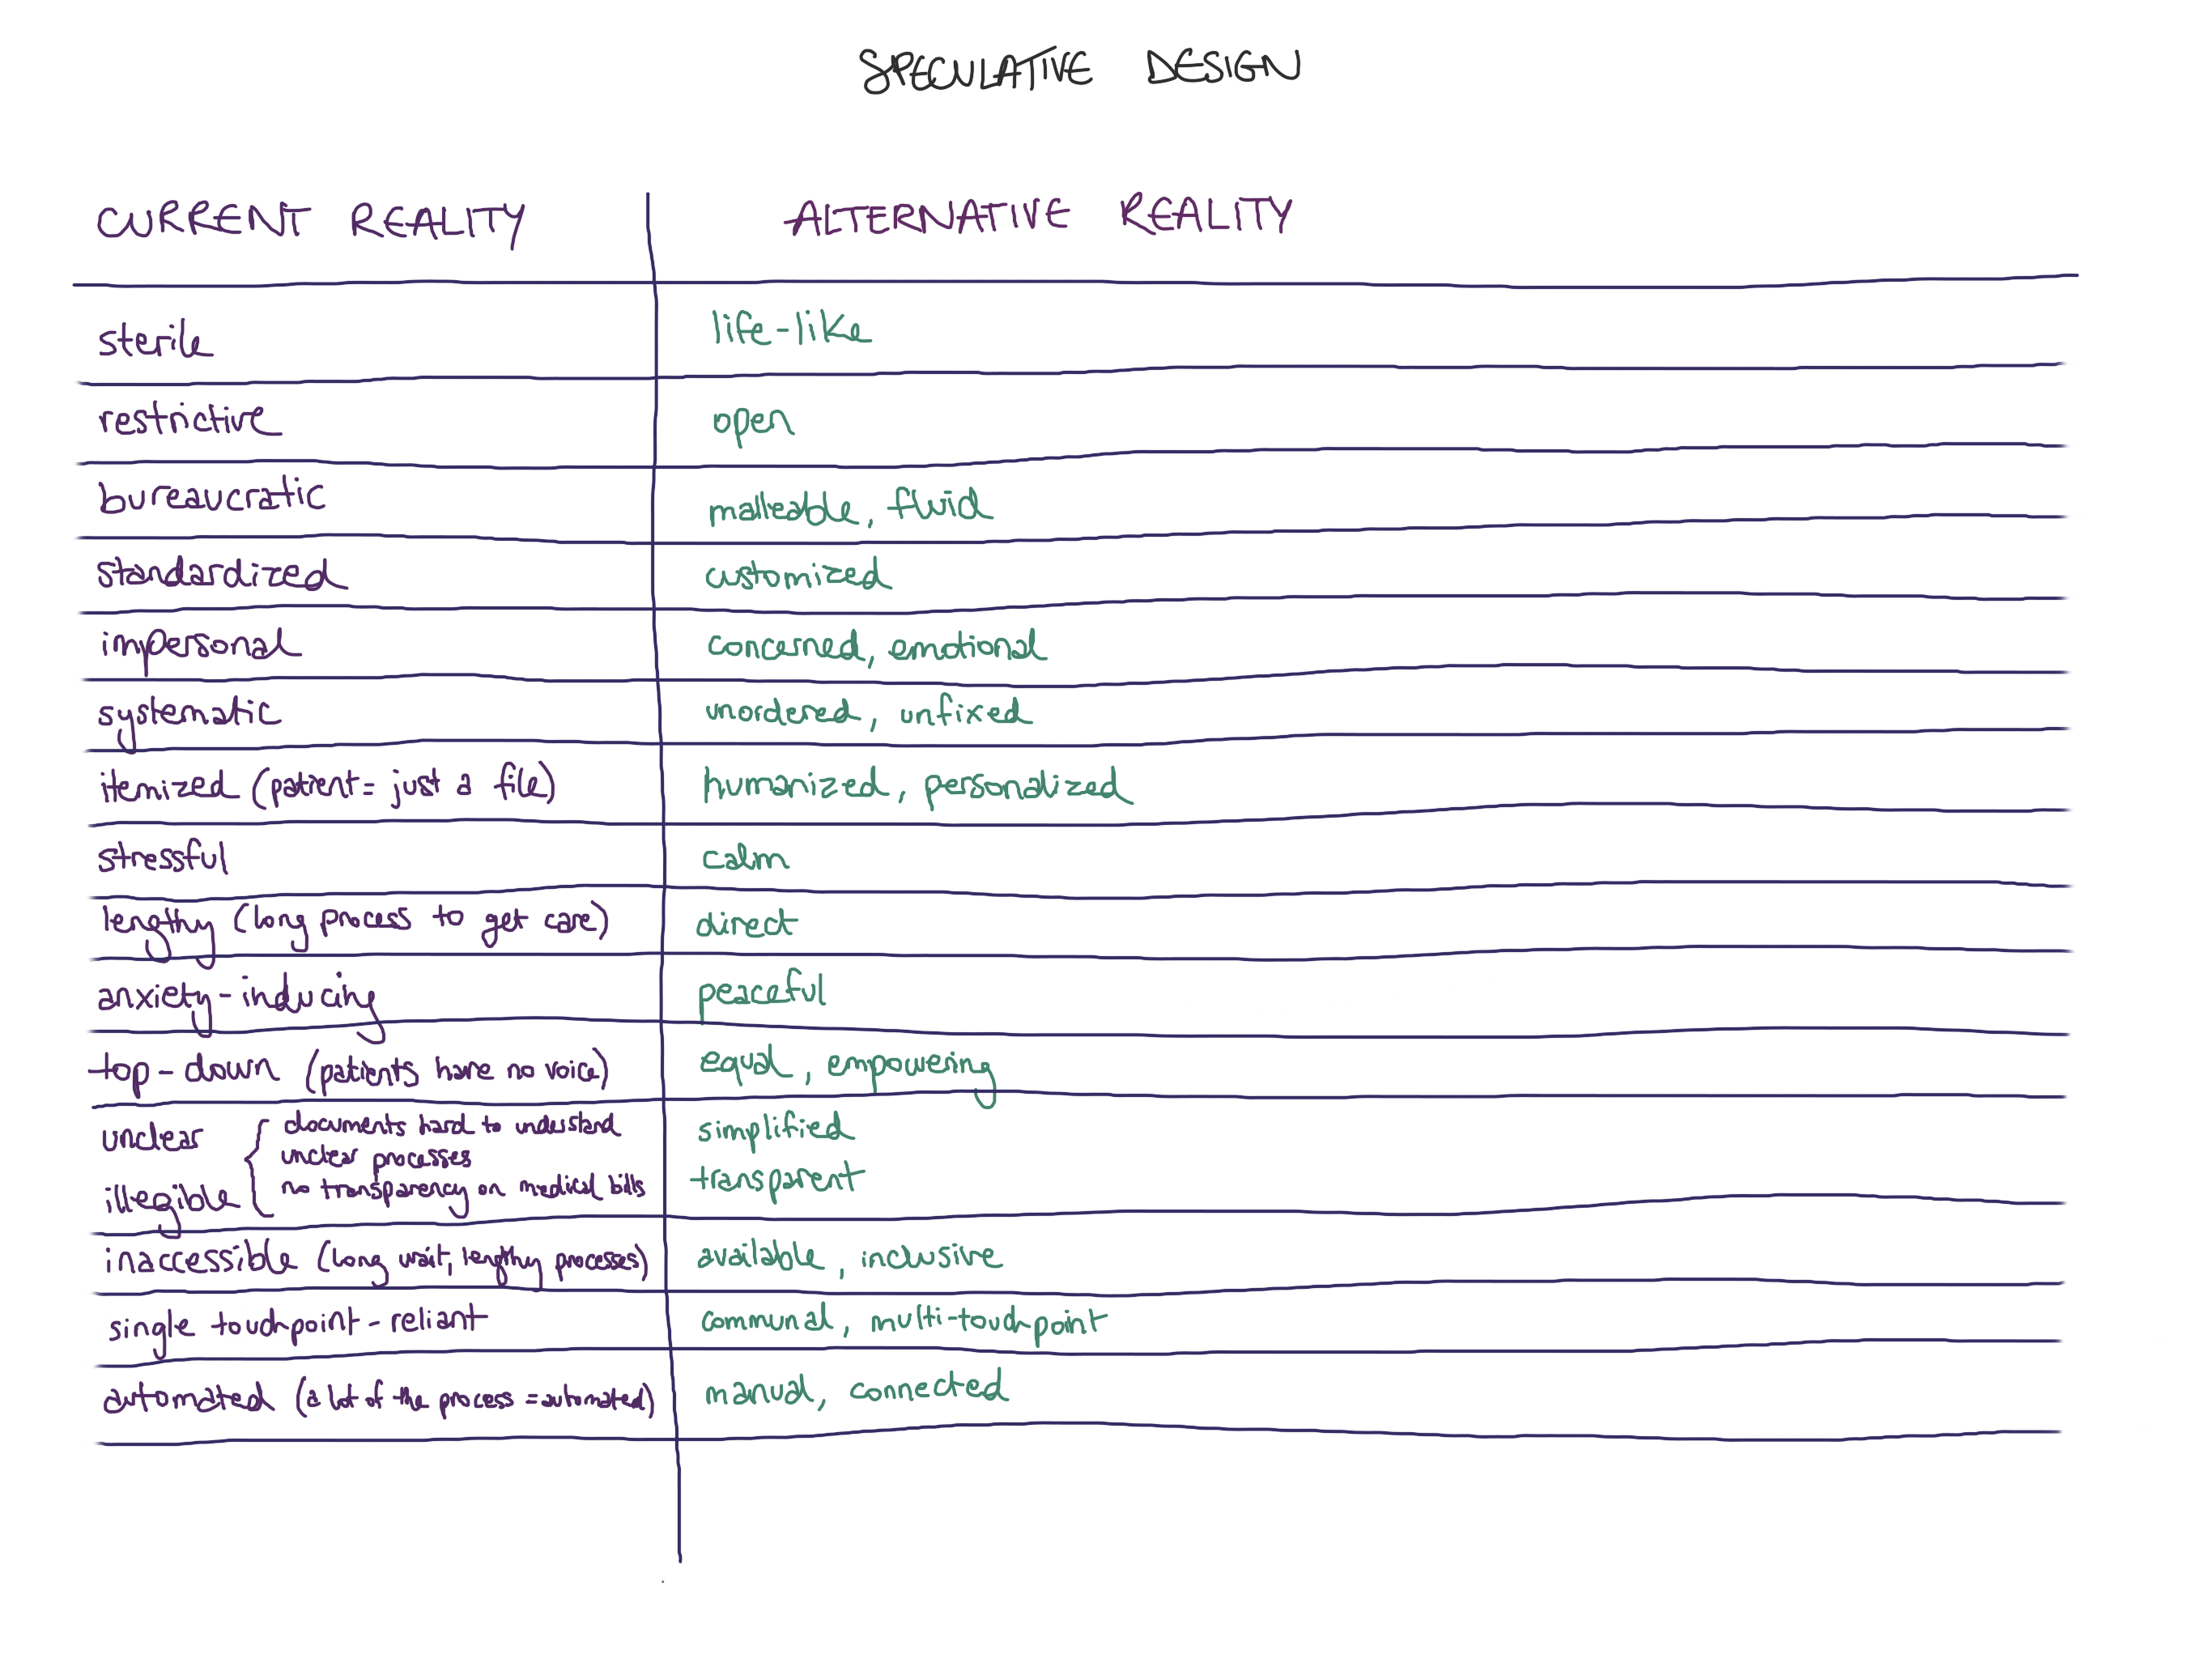 SPECULATIVE DESIGN
CURRENT REALITY ALTERNATIVE REALITY
sterile life-like
restrictive open
bureaucratic malleable, fluid
standardized customized
impersonal concerned, emotional
systematic unordered, unfixed
itemized (patient = just a file) humanized, personalized
stressful calm
lengthy (long process to get care) direct
anxiety-inducing peaceful
top-down (patients have no voice) equal, empowering
unclear { documents hard to understand simplified
unclear processes
illegible no transparency on medical bills transparent
inaccessible (long wait, lengthy processes) available, inclusive
single touchpoint-reliant communal, multi-touchpoint
automated (a lot of the process = automated) manual, connected